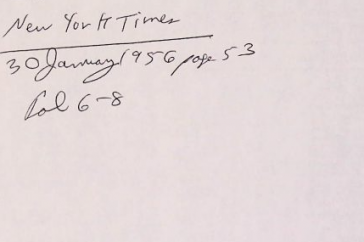 New York Times
30 January 1956 page 53
Col 6-8